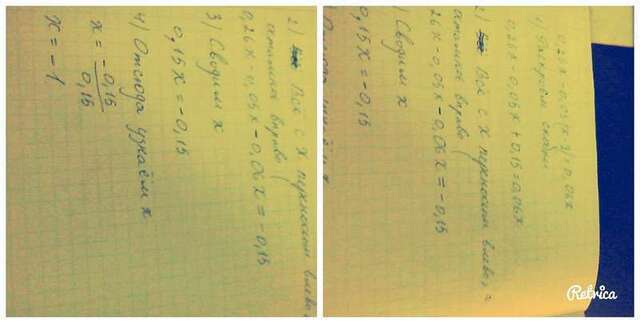 2) Всё с x переносим влево, а
остальное вправо
0,26x - 0,05x - 0,06x = -0,15
3) Сводим x
0,15x = -0,15
4) Отсюда узнаём x
x = -0,15
0,15
x = -1
1) Раскроем скобки
0,26x - 0,05x + 0,15 = 0,06x
2) Всё с x переносим влево, а
вправо
26x - 0,05x - 0,06x = -0,15
) Сводим x
0,15x = -0,15
Retrica